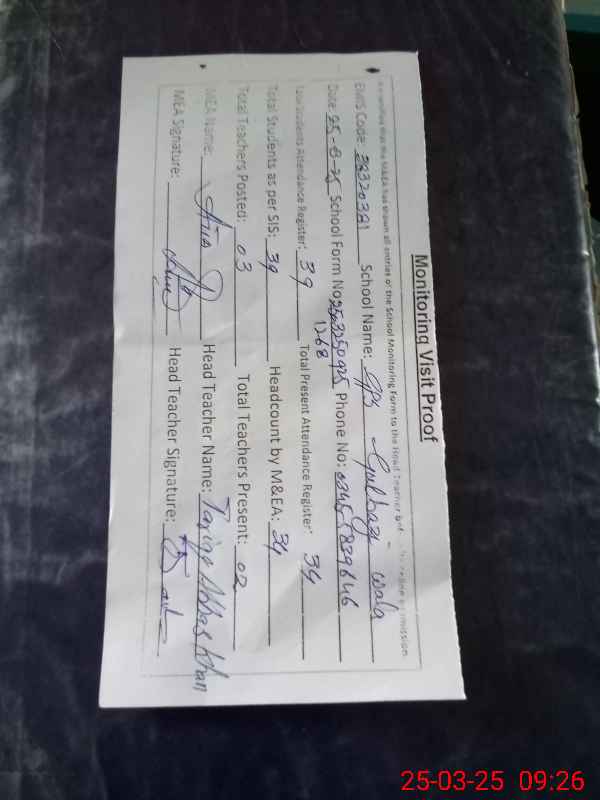 Monitoring Visit Proof
It is certified that the M&EA has shown all entries of the School Monitoring Form to the Head Teacher before online submission.
EMIS Code: School Name: GPS wala
Date: 25-3-25 School Form No: Phone No:
1268
Total Students Attendance Register: 39 Total Present Attendance Register: 34
Total Students as per SIS: 39 Headcount by M&EA: 34
Total Teachers Posted: 03 Total Teachers Present: 02
MEA Name: Head Teacher Name: Tariq Abbas Khan
MEA Signature: Head Teacher Signature:
25-03-25 09:26